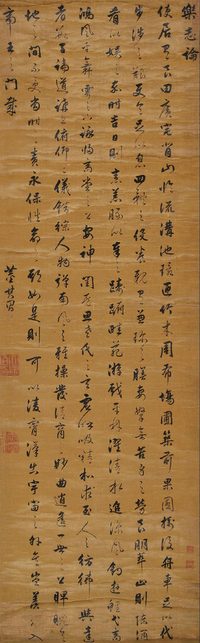 樂志論
使居有良田廣宅背山臨流溝池環匝竹木周布場圃築前果園樹後舟車足以代
步涉之難使令足以息四體之役養親有兼珍之膳妻孥無苦身之勞良朋萃止則陳酒
肴以娛之嘉時吉日則烹羔豚以奉之躊躇畦苑遊戲平林濯清水追涼風釣游鯉弋高
鴻風乎舞雩之下詠歸高堂之上安神閨房思老氏之玄虛呼吸精和求至人之彷彿與達
者數子論道講書俯仰二儀錯綜人物彈南風之雅操發清商之妙曲逍遙一世之上睥睨天
地之間不受當時之責永保性命之期如是則可以凌霄漢出宇宙之外矣豈羨夫入
帝王之門哉
董其昌